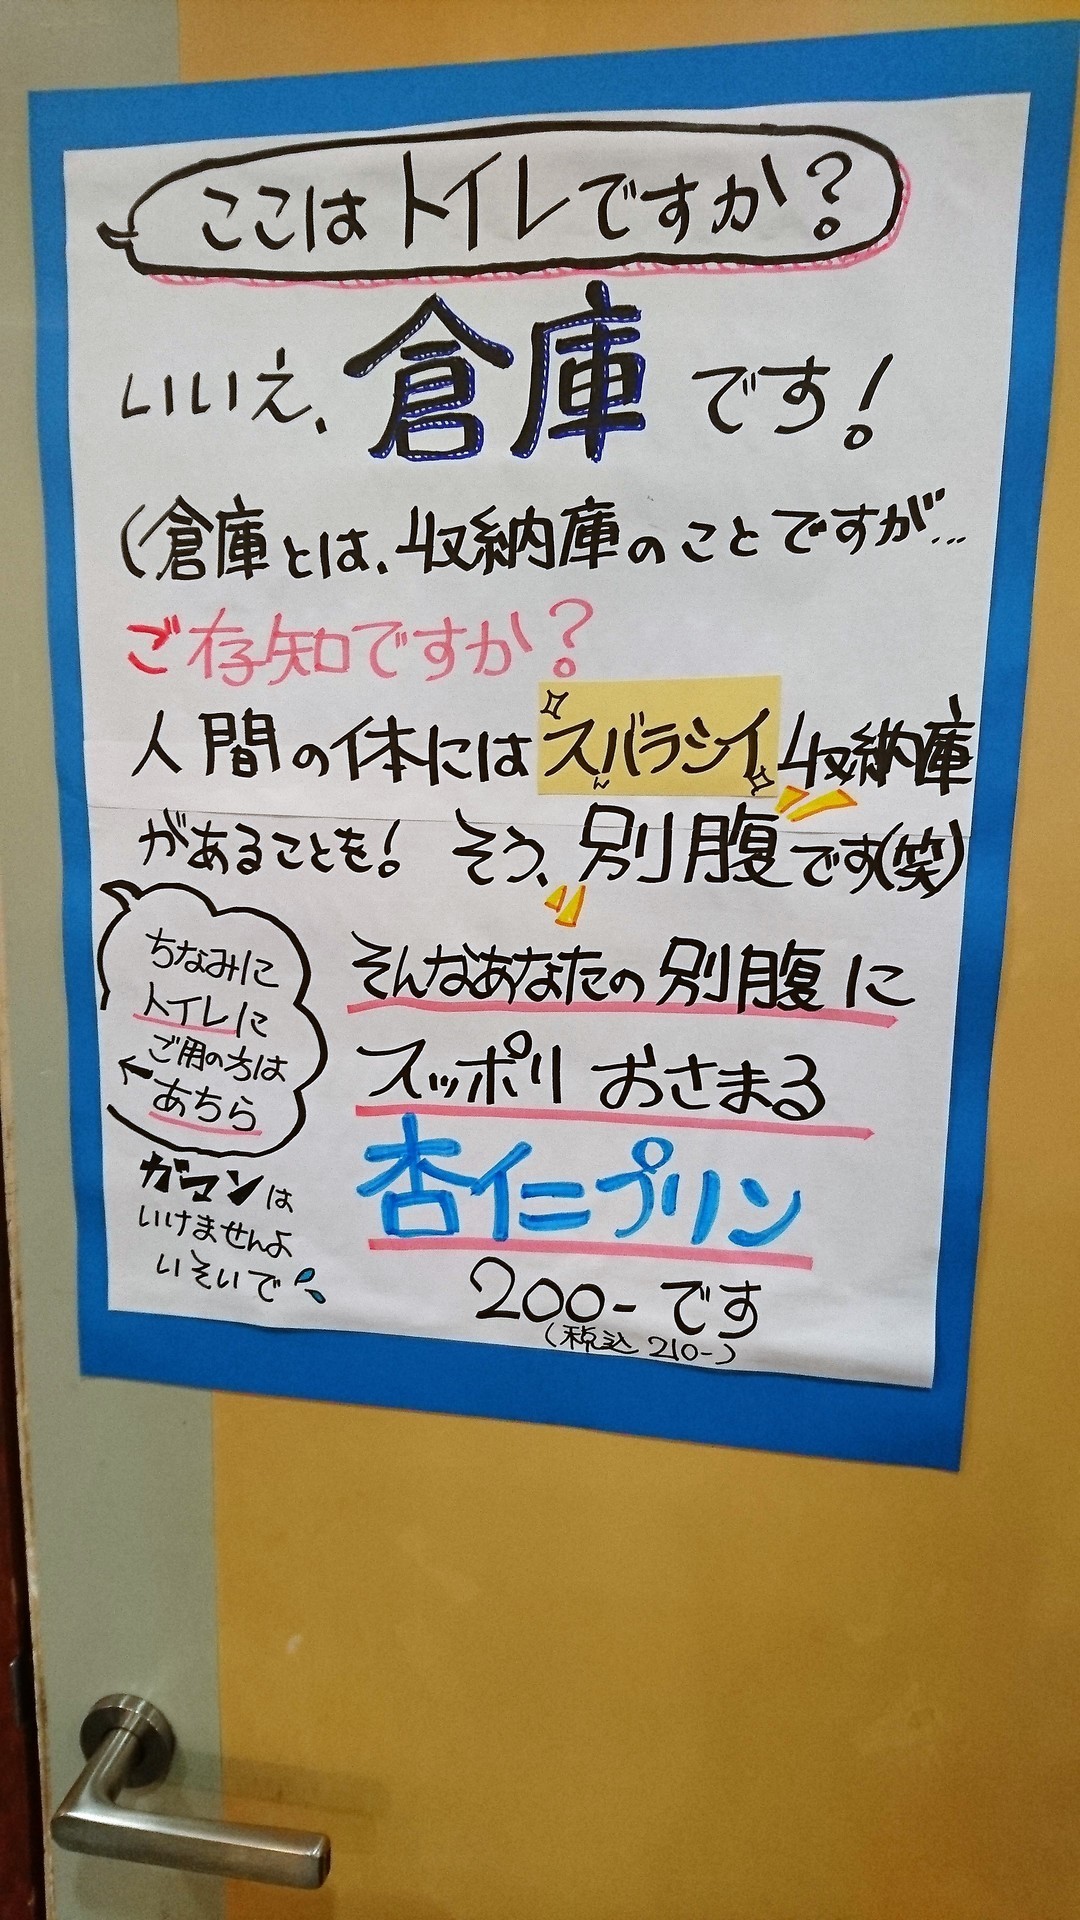 ここはトイレですか?
いいえ、倉庫です!
(倉庫とは、収納庫のことですが…
ご存知ですか?
人間の体にはスバラシイ収納庫
があることを! そう、別腹です(笑)
そんなあなたの別腹に
スッポリおさまる
杏仁プリン
200-です
(税込210-)
ちなみに
トイレに
ご用の方は
←あちら
ガマンは
いけませんよ
いそいで